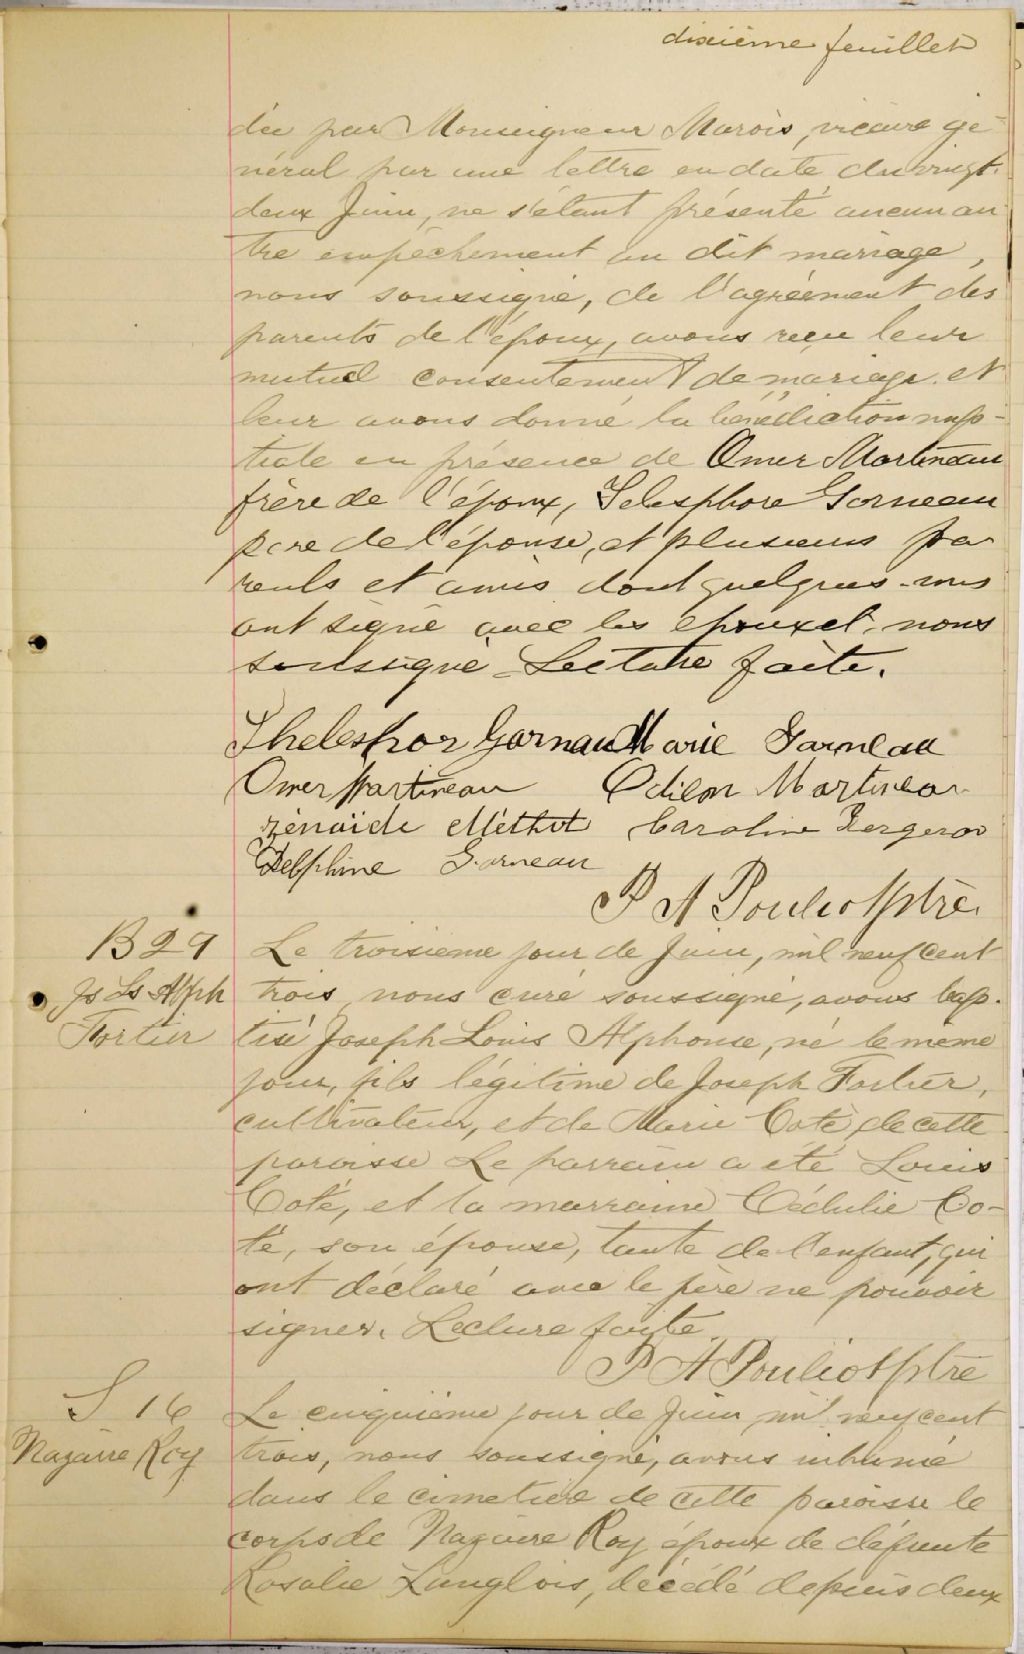 dixième feuillet
dée par Monseigneur Marois, vicaire gé-
néral par une lettre en date du vingt-
deux Juin, ne s'étant présenté aucun au
tre empêchement au dit mariage,
nous soussigné, de l'agrément des
parents de l'époux, avons reçu leur
mutuel consentement de mariage et
leur avons donné la bénédiction nup-
tiale en présence de Omer Martineau
frère de l'époux, Telesphore Garneau
père de l'épouse, et plusieurs pa
rents et amis dont quelques-uns
ont signé avec les epoux et nous
soussigné - Lecture faite.
Thelesphor Garneau Marie Garneau
Omer Martineau Odilon Martineau
Zénaïde Méthot Caroline Bergeron
Delphine Garneau
P A Pouliot ptre.
B 29
Js Ls Alph
Fortier
Le troisieme jour de Juin, mil neuf cent
trois, nous curé soussigné, avons bap-
tisé Joseph Louis Alphonse, né le même
jour, fils légitime de Joseph Fortier,
cultivateur, et de Marie Coté, de cette
paroisse Le parrain a été Louis
Coté, et la marraine Cédulie Co-
té, son épouse, tante de l'enfant, qui
ont déclaré avec le père ne pouvoir
signer. Lecture faite.
P A Pouliot ptre
S 16
Nazaire Roy
Le cinquième jour de Juin mil neuf cent
trois, nous soussigné, avons inhumé
dans le cimetière de cette paroisse le
corps de Nazaire Roy époux de défunte
Rosalie Langlois, décédé depuis deux